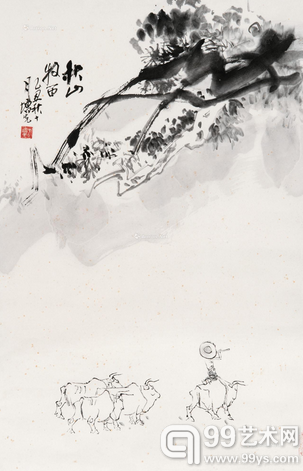 秋山
牧笛
乙丑秋
99艺术网
www.99ys.com